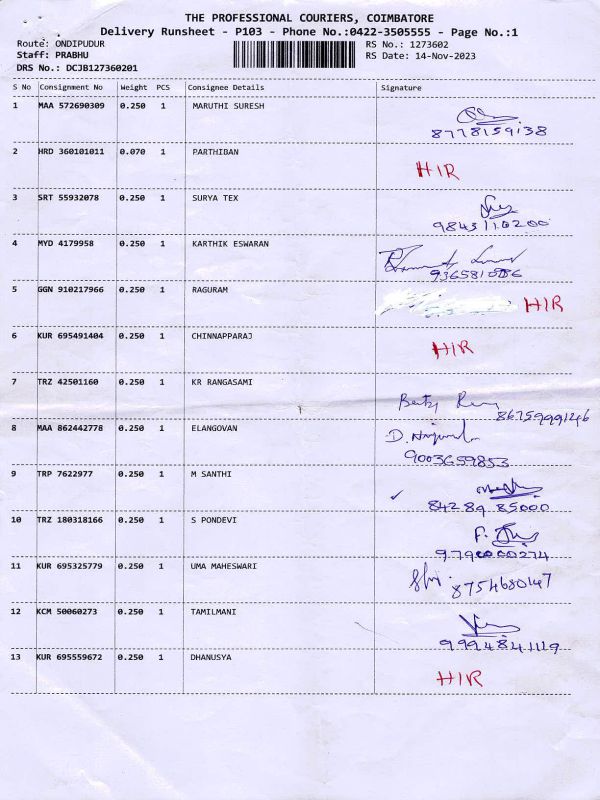 THE PROFESSIONAL COURIERS, COIMBATORE
Delivery Runsheet - P103 - Phone No.:0422-3505555 - Page No.:1
Route: ONDIPUDUR RS No.: 1273602
Staff: PRABHU RS Date: 14-Nov-2023
DRS No.: DCJB127360201
S No Consignment No Weight PCS Consignee Details Signature
1 MAA 572690309 0.250 1 MARUTHI SURESH
8778159138
2 HRD 360101011 0.070 1 PARTHIBAN HIR
3 SRT 55932078 0.250 1 SURYA TEX
9843110200
4 MYD 4179958 0.250 1 KARTHIK ESWARAN
5 GGN 910217966 0.250 1 RAGURAM HIR
6 KUR 695491404 0.250 1 CHINNAPPARAJ HIR
7 TRZ 42501160 0.250 1 KR RANGASAMI
8 MAA 862442778 0.250 1 ELANGOVAN D.
9003659853
9 TRP 7622977 0.250 1 M SANTHI
84289 85000
10 TRZ 180318166 0.250 1 S PONDEVI
11 KUR 695325779 0.250 1 UMA MAHESWARI
8754680147
12 KCM 50060273 0.250 1 TAMILMANI
9994841119
13 KUR 695559672 0.250 1 DHANUSYA HIR